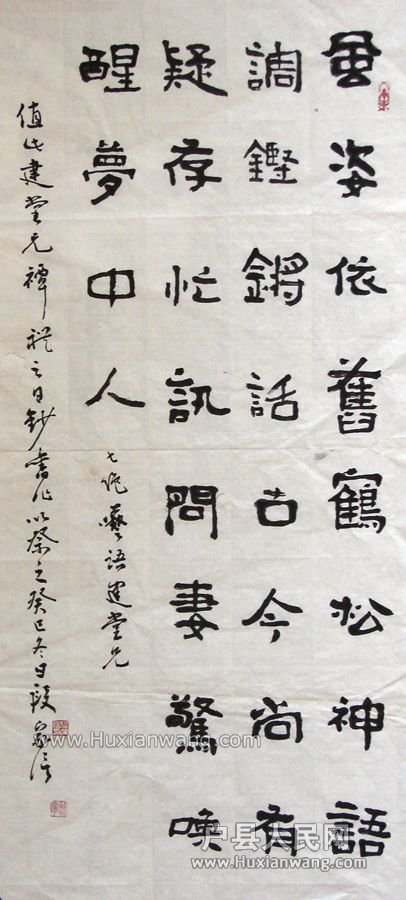 風姿依舊鶴松神語
調鏗鏘話古今尚有
疑存忙訊問妻驚喚
醒夢中人
七絕夢語建堂兄
值此建堂兄禫祀之日鈔書作以祭之癸巳冬日段
www.Huxianwang.com
户县人民网
www.Huxianwang.com